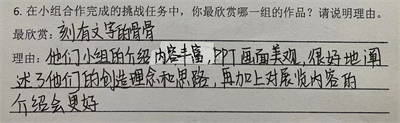 6. 在小组合作完成的挑战任务中，你最欣赏哪一组的作品？请说明理由。
最欣赏：刻有文字的骨骨
理由：他们小组的介绍内容丰富，PPT画面美观，很好地阐
述了他们的创造理念和思路，再加上对展览内容的
介绍会更好